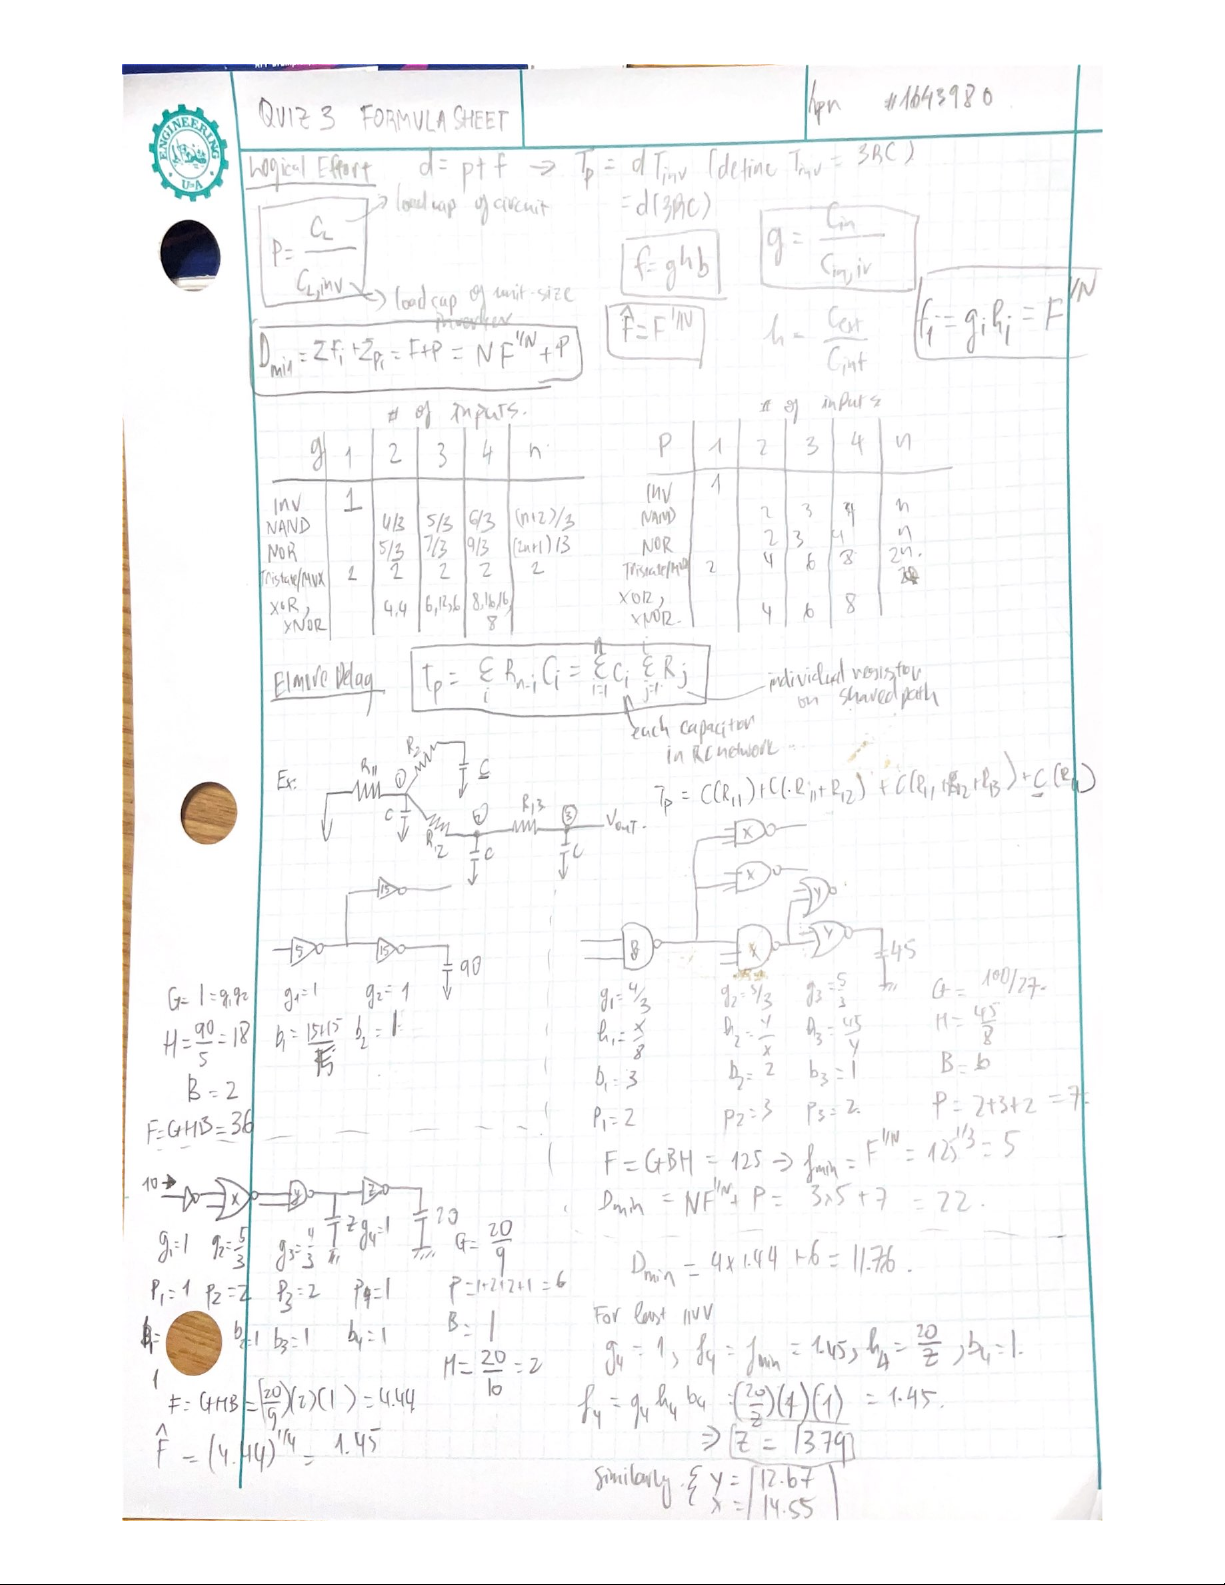 QUIZ 3 FORMULA SHEET
hpn #1643980
ENGINEERING
U of A
Logical Effort d = p + f → Tp = d Tinv (define Tinv = 3RC)
= d(3RC)
P = CL / CL,inv
→ load cap of circuit
→ load cap of unit-size
inverter
f = ghb
g = Cin / Cin,iv
F̂ = F^1/N
h = Cext / Cint
fi = gihi = F^1/N
Dmin = Σfi + Σpi = F+P = NF^1/N + P
# of inputs.
g 1 2 3 4 n
INV 1
NAND 4/3 5/3 6/3 (n+2)/3
NOR 5/3 7/3 9/3 (2n+1)/3
Tristate/MUX 2 2 2 2 2
XOR, XNOR 4,4 6,12,6 8,16,16,8
# of inputs
P 1 2 3 4 n
INV 1
NAND 2 3 4 n
NOR 2 3 4 n
Tristate/MUX 2 4 6 8 2n.
XOR, XNOR. 4 6 8
Elmore Delay
Tp = Σi Rn-i Ci = Σ i=1 n Ci Σ j=1 i Rj
individual resistor
on shared path
each capacitor
in RC network
Ex: R11 1 R2 C C R12 2 C R13 3 C VOUT.
Tp = C(R11) + C(R11+R12) + C(R11+R12+R13) + C(R11)
5 15 15 90
G = 1 = g1g2 g1=1 g2=1
H = 90/5 = 18 b1 = 15+15/15 b2 = 1
B = 2
F = GHB = 36
8 X X X Y Y 45
g1=4/3 g2=5/3 g3=5/3 G = 100/27.
h1=x/8 h2=y/x h3=45/y H = 45/8
b1=3 b2=2 b3=1 B=6
P1=2 P2=3 P3=2. P = 2+3+2 = 7
F = GBH = 125 → fmin = F^1/N = 125^1/3 = 5
Dmin = NF^1/N + P = 3×5+7 = 22.
10 → X y z z 20
g1=1 g2=5/3 g3=4/3 g4=1 G = 20/9
P1=1 P2=2 P3=2 P4=1 P=1+2+2+1=6
b1=1 b2=1 b3=1 b4=1 B = 1
H = 20/10 = 2
F = GHB = (20/9)(2)(1) = 4.44
F̂ = (4.44)^1/4 = 1.45
Dmin = 4×1.44 + 6 = 11.76.
For least INV
g4 = 1, f4 = fmin = 1.45, h4 = 20/z, b4=1.
f4 = g4 h4 b4 = (20/z)(1)(1) = 1.45.
⇒ z = 1379
Similarly { y = 12.67
x = 14.55